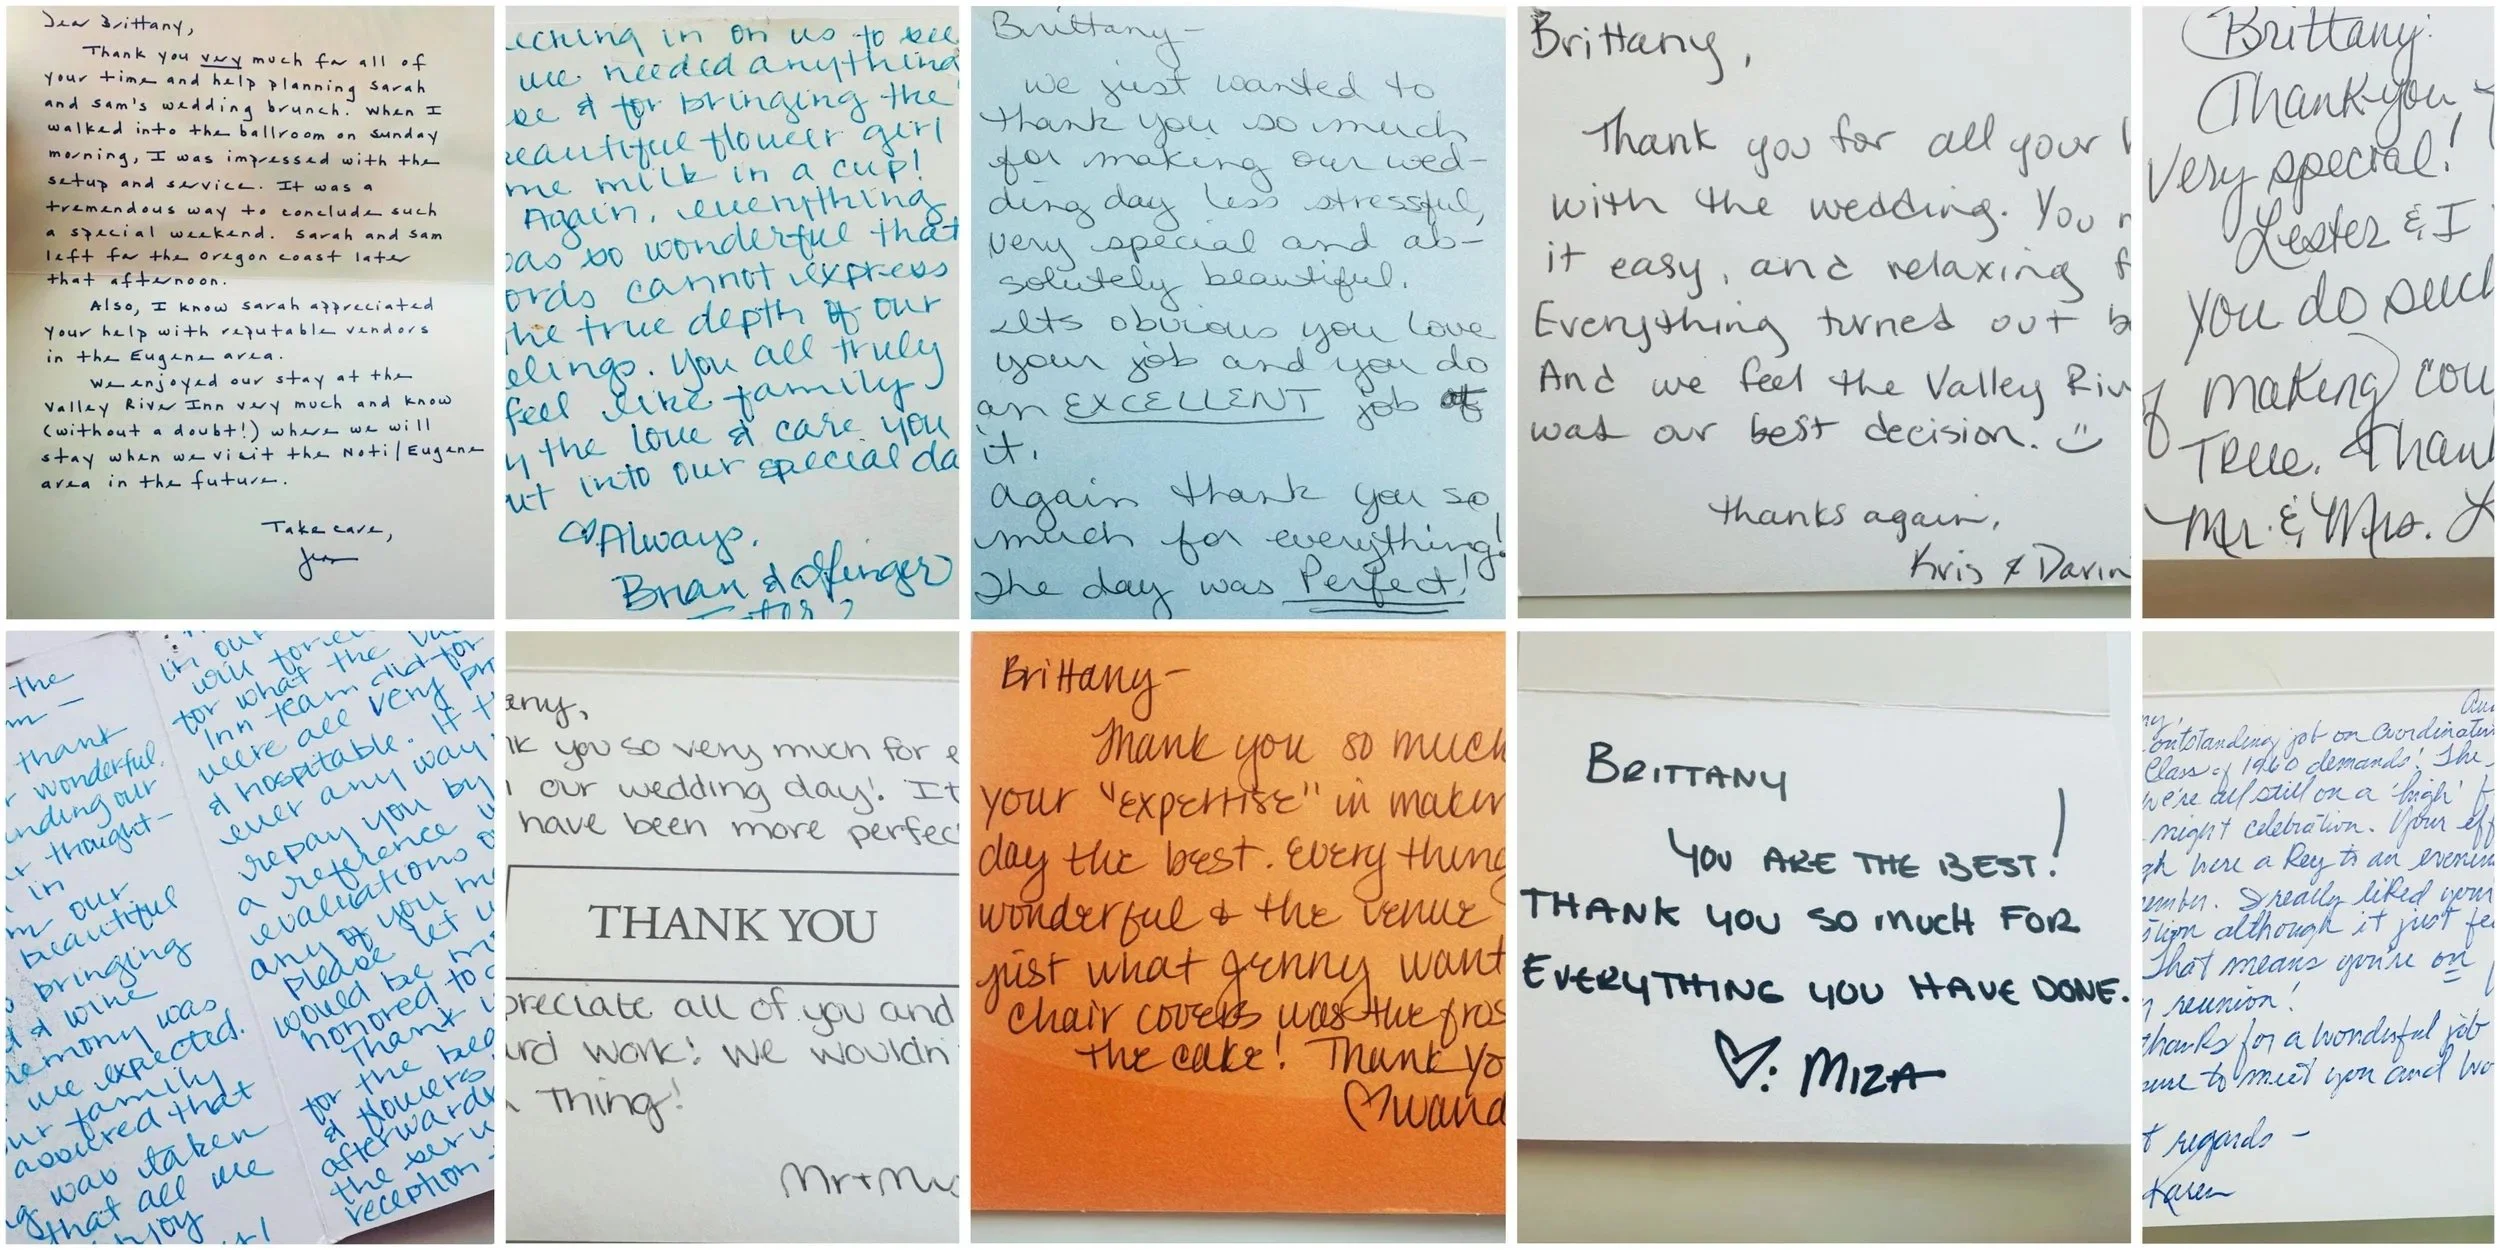 Dear Brittany,
Thank you very much for all of
your time and help planning Sarah
and Sam's wedding brunch. When I
walked into the ballroom on Sunday
morning, I was impressed with the
setup and service. It was a
tremendous way to conclude such
a special weekend. Sarah and Sam
left for the Oregon coast later
that afternoon.
Also, I know Sarah appreciated
your help with reputable vendors
in the Eugene area.
We enjoyed our stay at the
Valley River Inn very much and know
(without a doubt!) where we will
stay when we visit the Noti/Eugene
area in the future.
Take care,
in on us to see
we needed anything
& for bringing the
beautiful flower girl
me milk in a cup!
Again, everything
was so wonderful that
words cannot express
the true depth of our
feelings. You all truly
feel like family
the love & care you
put into our special da
Always,
Brian &
Brittany-
We just wanted to
thank you so much
for making our wed-
ding day less stressful,
very special and ab-
solutely beautiful.
Its obvious you love
your job and you do
an EXCELLENT job
it.
Again thank you so
much for everything!
The day was Perfect!
Brittany,
Thank you for all your
with the wedding. You
it easy, and relaxing f
Everything turned out b
And we feel the Valley Riv
was our best decision. :)
thanks again,
Kris & Darin
Brittany:
Thank you
very special!
Lester & I
you do such
of making cou
True. Than
Mr. & Mrs. L
the
thank
wonderful.
nding our
thought-
in
our
beautiful
bringing
& wine
remony was
we expected.
our family
assured that
was taken
that all we
joy
in our
will forever
for what the
Inn team did for
were all very pr
& hospitable. If t
ever any way
repay you by
a reference
evaluations o
any of you
please let u
would be
honored to
Thank
for the
& flowers
afterwards
the
reception-
any,
nk you so very much for e
our wedding day! It
have been more perfec
THANK YOU
preciate all of you and
ard work! We wouldn
thing!
Mr + Mrs
Brittany-
Thank you so much
your "expertise" in makin
day the best. Everything
wonderful & the venue
just what Jenny want
chair covers was the fros
the cake! Thank Yo
Wand
BRITTANY
YOU ARE THE BEST!
THANK YOU SO MUCH FOR
EVERYTHING YOU HAVE DONE.
♡: MIZA
ny,
outstanding job on coordinatin
Class of 1960 demands! The
We're all still on a 'high' f
night celebration. Your eff
gh were a key to an evenin
ember. I really liked your
stion although it just fe
That means you're on
reunion!
thanks for a wonderful job
sure to meet you and wo
t regards-
Karen